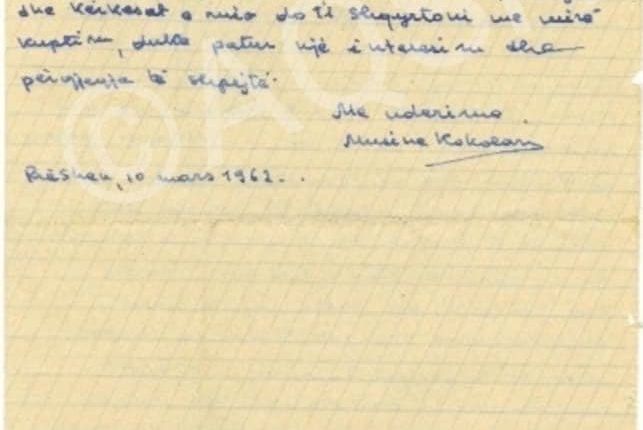 dhe kërkesat e mia do ti shqyrtoni me mirë
kuptim, duke patur një interesim dhe
përgjegje të shpejtë.
Me nderime.
Musine Kokolari
Rrëshen, 10 mars 1962.
©AQSH